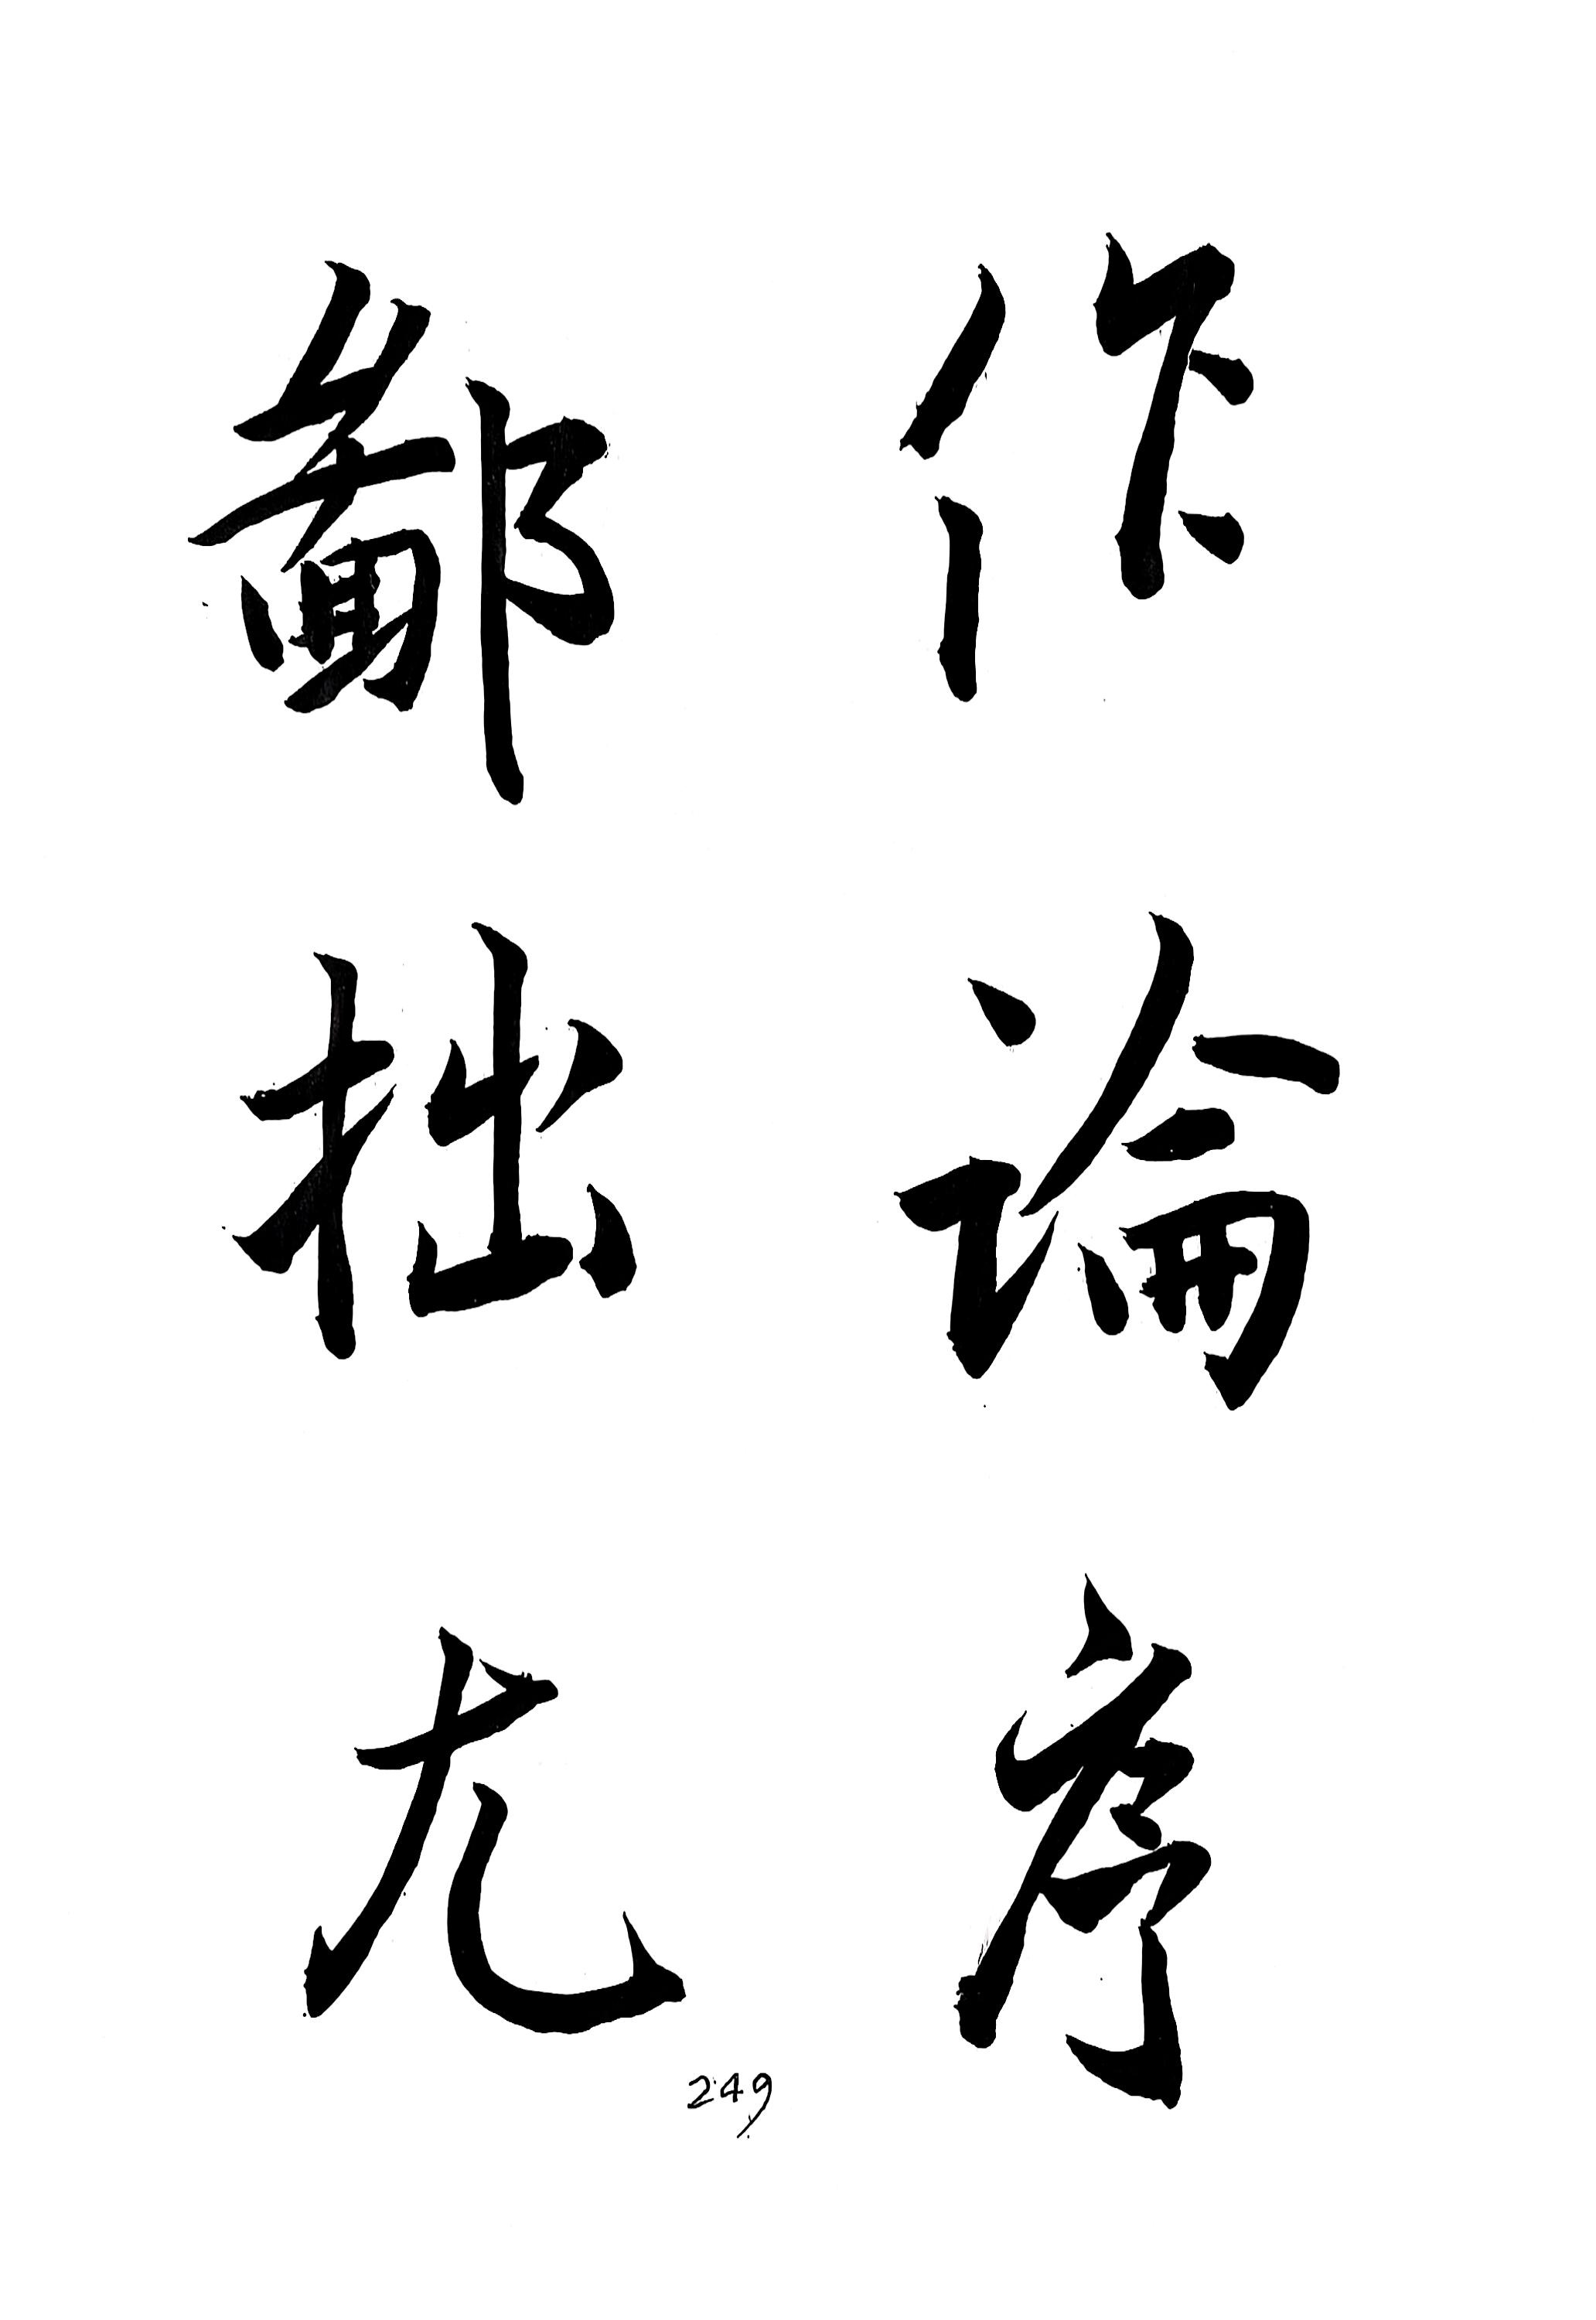 作論序
鄙拙尤
249